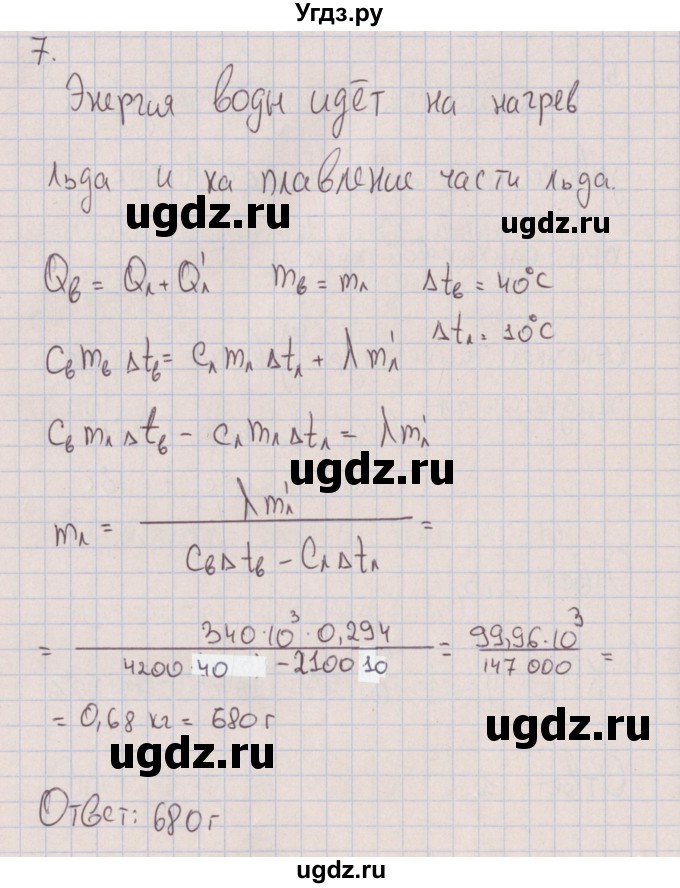 Угдз.ру
7.
Энергия воды идёт на нагрев
льда и на плавление части льда.
ugdz.ru
ugdz.ru
Qв = Qл + Qл' mв = mл Δtв = 40°C
Δtл = 10°C
Cв mв Δtв = Cл mл Δtл + λ mл'
Cв mл Δtв - Cл mл Δtл = λ mл'
ugdz.ru
mл = λ mл' / (Cв Δtв - Cл Δtл) =
= 340·10³·0,294 / (4200 40 - 2100 10) = 99,96·10³ / 147 000 =
= 0,68 кг = 680 г
ugdz.ru
ugdz.ru
Ответ: 680 г
ugdz.ru
ugdz.ru